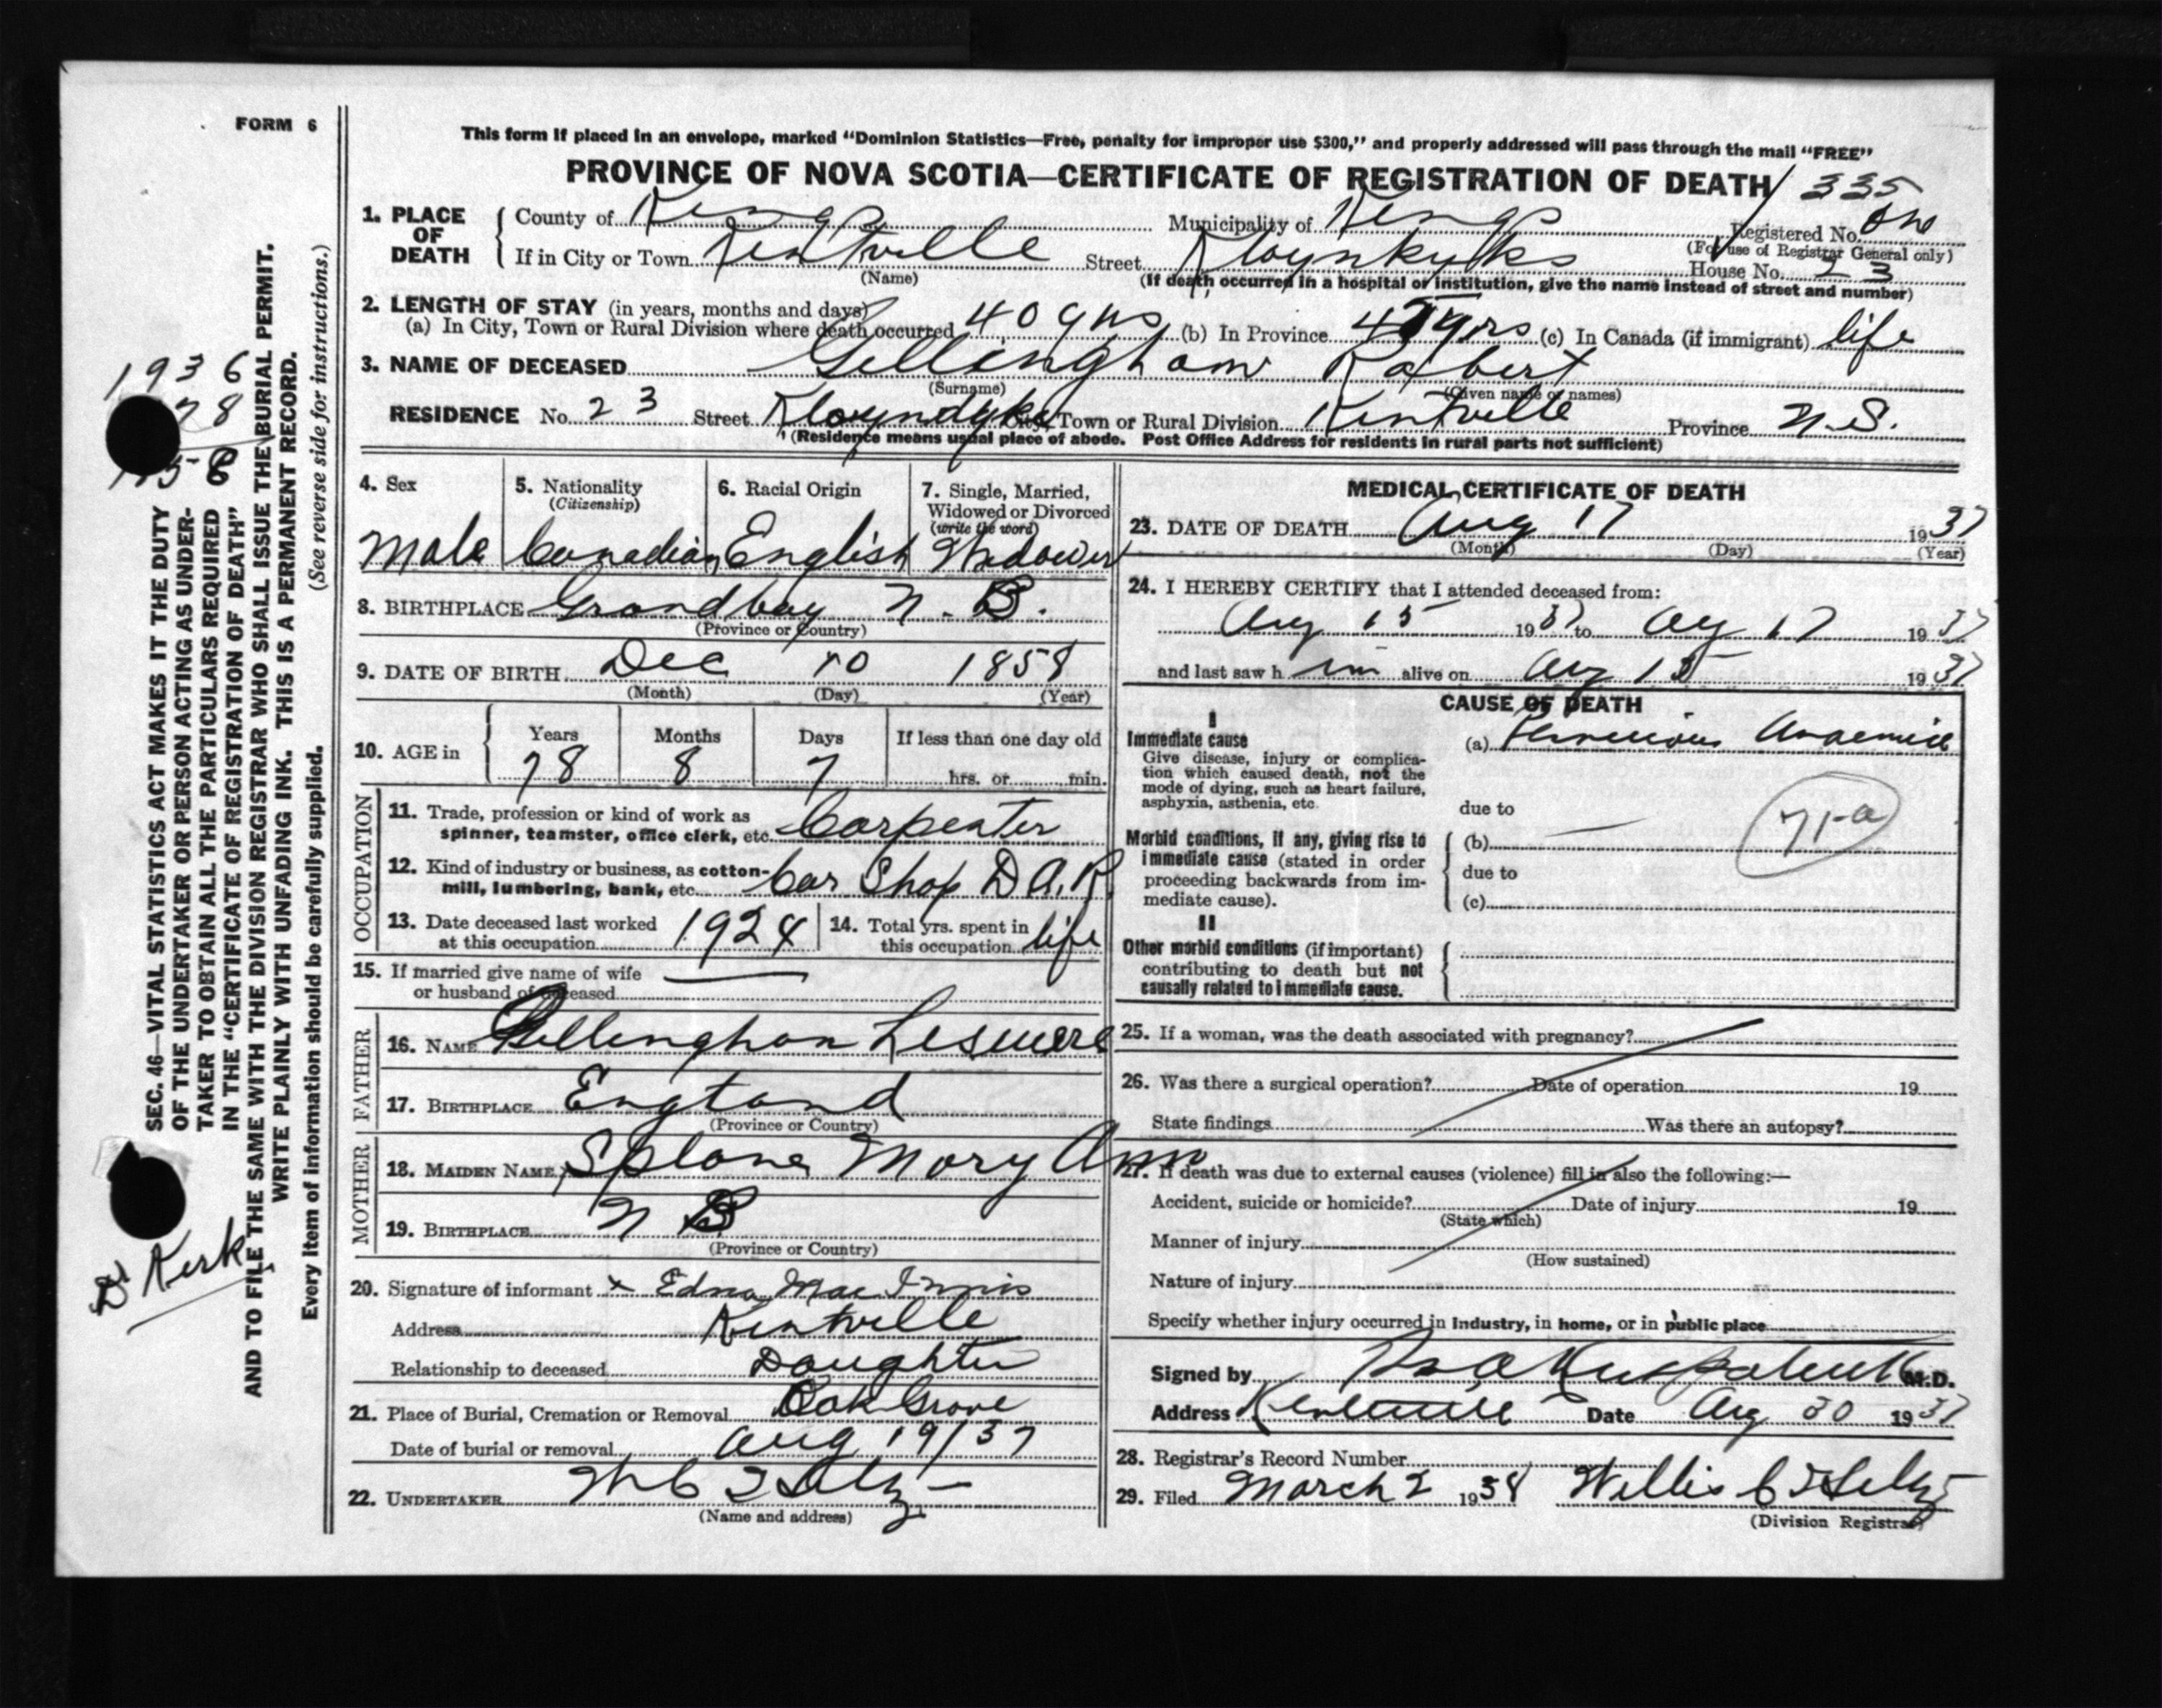 FORM 6
This form if placed in an envelope, marked “Dominion Statistics—Free, penalty for improper use $300,” and properly addressed will pass through the mail “FREE”
PROVINCE OF NOVA SCOTIA—CERTIFICATE OF REGISTRATION OF DEATH 335
1. PLACE OF DEATH { County of Kings Municipality of Kings Registered No. One
(For use of Registrar General only)
If in City or Town Kentville Street House No. 23
(Name) (If death occurred in a hospital or institution, give the name instead of street and number)
2. LENGTH OF STAY (in years, months and days)
(a) In City, Town or Rural Division where death occurred 40 yrs (b) In Province yrs (c) In Canada (if immigrant) life
3. NAME OF DECEASED Gillingham Robert
(Surname) (Given name or names)
RESIDENCE No. 23 Street Kloyndyke City, Town or Rural Division Kentville Province N.S.
(Residence means usual place of abode. Post Office Address for residents in rural parts not sufficient)
4. Sex 5. Nationality (Citizenship) 6. Racial Origin 7. Single, Married, Widowed or Divorced (write the word)
Male Canadian English Widower
8. BIRTHPLACE Grandbay N.B.
(Province or Country)
9. DATE OF BIRTH Dec 10 1858
(Month) (Day) (Year)
10. AGE in { Years Months Days If less than one day old
78 8 7 hrs. or min.
OCCUPATION
11. Trade, profession or kind of work as
spinner, teamster, office clerk, etc. Carpenter
12. Kind of industry or business, as cotton-
mill, lumbering, bank, etc. Car Shop D.A.R.
13. Date deceased last worked at this occupation 1924 14. Total yrs. spent in this occupation life
15. If married give name of wife
or husband of deceased —
FATHER
16. NAME Gillingham
17. BIRTHPLACE England
(Province or Country)
MOTHER
18. MAIDEN NAME Splane Mary Ann
19. BIRTHPLACE N B
(Province or Country)
20. Signature of informant x Edna MacInnis
Address Kentville
Relationship to deceased Daughter
21. Place of Burial, Cremation or Removal Oak Grove
Date of burial or removal Aug 19/37
22. UNDERTAKER
(Name and address)
MEDICAL CERTIFICATE OF DEATH
23. DATE OF DEATH Aug 17 1937
(Month) (Day) (Year)
24. I HEREBY CERTIFY that I attended deceased from:
Aug 15 1937 to Aug 17 1937
and last saw him alive on Aug 15 1937
CAUSE OF DEATH
I
Immediate cause (a) Pernicious Anaemia
Give disease, injury or complica-
tion which caused death, not the
mode of dying, such as heart failure,
asphyxia, asthenia, etc.
due to
71-a
Morbid conditions, if any, giving rise to (b) —
immediate cause (stated in order
proceeding backwards from im- due to
mediate cause). (c)
II
Other morbid conditions (if important)
contributing to death but not
causally related to immediate cause.
25. If a woman, was the death associated with pregnancy?
26. Was there a surgical operation? Date of operation 19
State findings Was there an autopsy?
27. If death was due to external causes (violence) fill in also the following:—
Accident, suicide or homicide? Date of injury 19
(State which)
Manner of injury
(How sustained)
Nature of injury
Specify whether injury occurred in industry, in home, or in public place
Signed by M.D.
Address Kentville Date Aug 30 1937
28. Registrar's Record Number
29. Filed March 2 1938 Willis C
(Division Registrar)
1936
78
158
Dr Kirk
SEC. 46—VITAL STATISTICS ACT MAKES IT THE DUTY
OF THE UNDERTAKER OR PERSON ACTING AS UNDER-
TAKER TO OBTAIN ALL THE PARTICULARS REQUIRED
IN THE “CERTIFICATE OF REGISTRATION OF DEATH”
AND TO FILE THE SAME WITH THE DIVISION REGISTRAR WHO SHALL ISSUE THE BURIAL PERMIT.
WRITE PLAINLY WITH UNFADING INK. THIS IS A PERMANENT RECORD.
Every item of information should be carefully supplied. (See reverse side for instructions.)